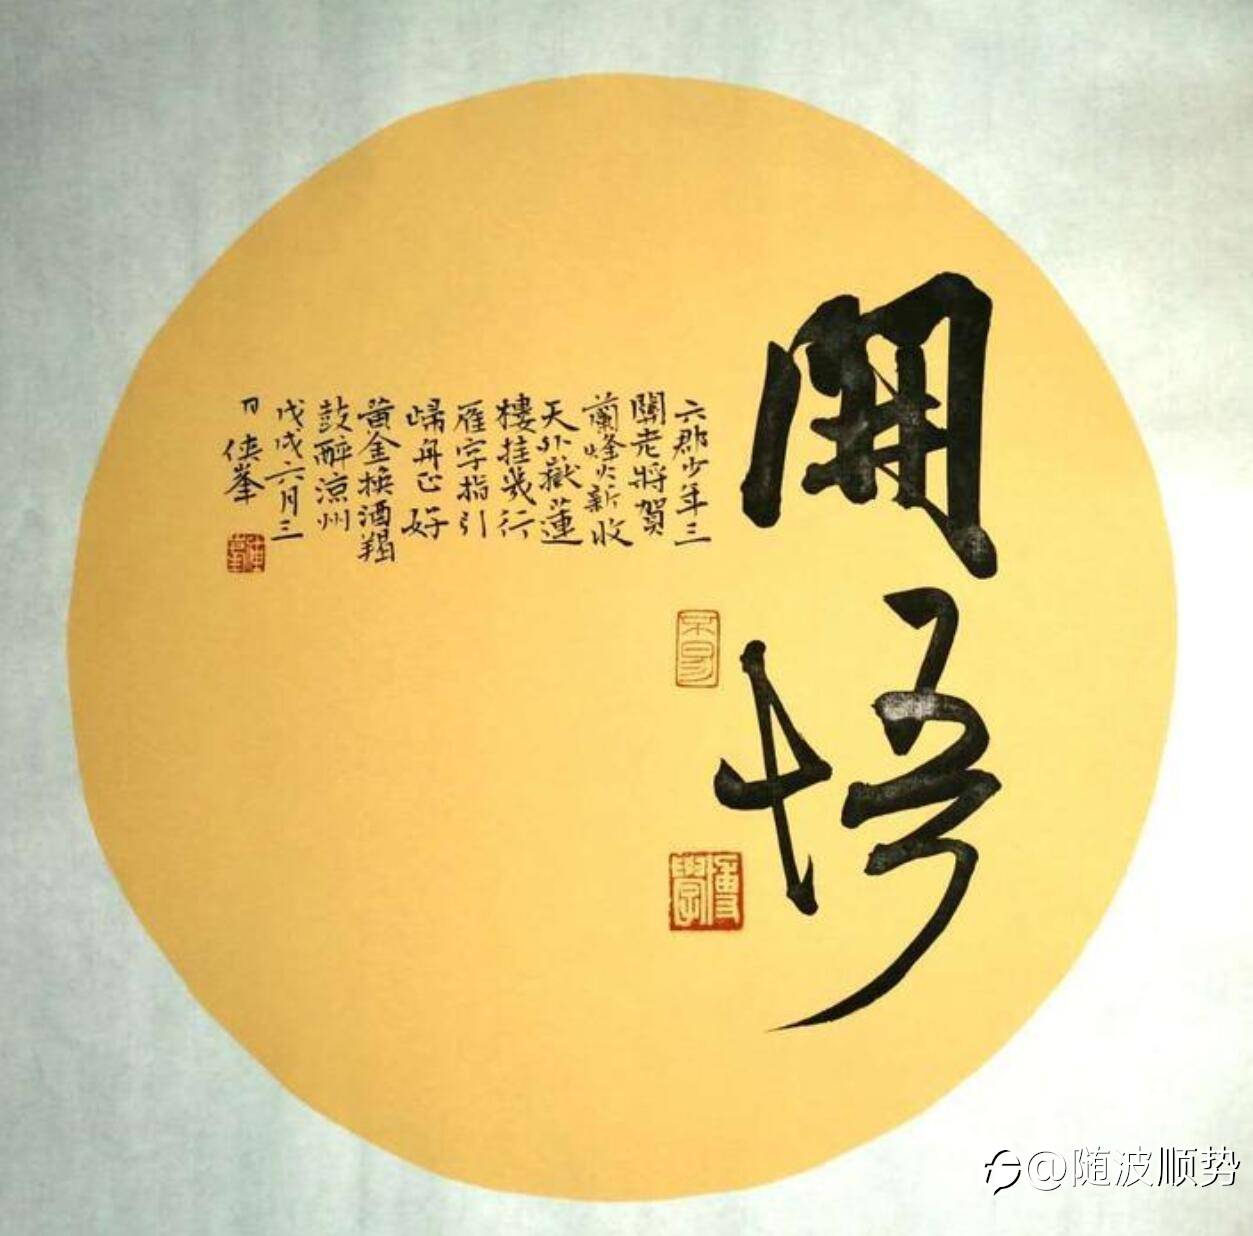 開悟
六郡少年三
關老將賀
蘭烽火新收
天外嶽蓮
樓挂幾行
雁字指引
歸舟正好
黃金換酒羯
鼓醉涼州
戊戌六月三
日俠峯
博學
@随波顺势